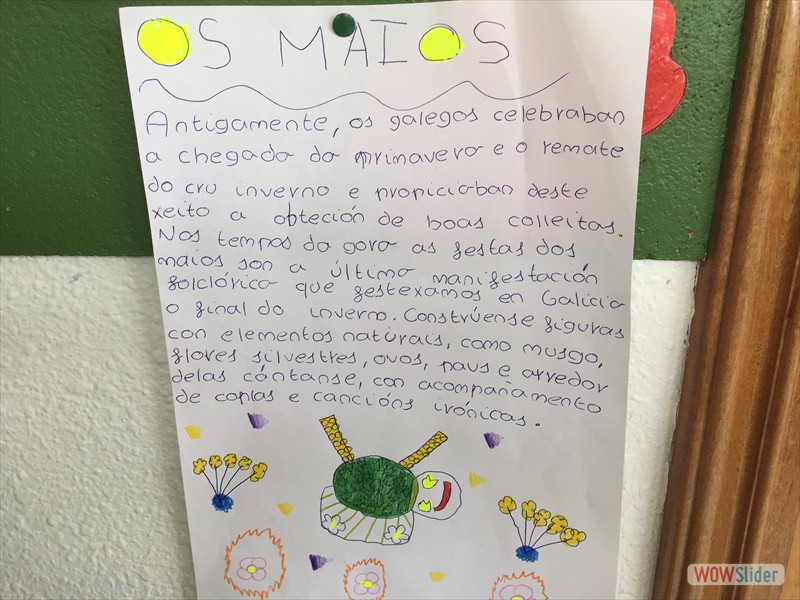 OS MAIOS
Antigamente, os galegos celebraban
a chegada da primavera e o remate
do cru inverno e propiciaban deste
xeito a obteción de boas colleitas.
Nos tempos da gora as festas dos
maios son a última manifestación
folclórica que festexamos en Galicia
o final do inverno. Constrúense figuras
con elementos naturais, como musgo,
flores silvestres, ovos, paus e arredor
delas cántanse, con acompañamento
de coplas e cancións irónicas.
WOWSlider